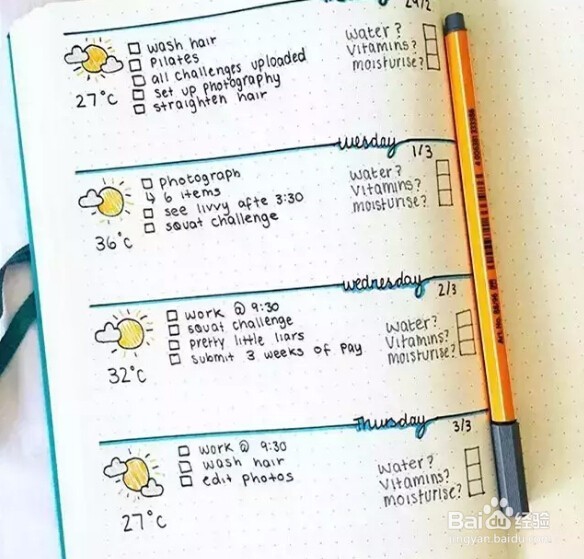 29/2
wash hair
pilates
all challenges uploaded
set up photography
straighten hair
27°c
water?
vitamins?
moisturise?
uesday
1/3
photograph
↳ 6 items
see livvy afte 3:30
squat challenge
36°c
water?
vitamins?
moisturise?
wednesday
2/3
work @ 9:30
squat challenge
pretty little liars
submit 3 weeks of pay
32°c
water?
vitamins?
moisturise?
Thursday
3/3
work @ 9:30
wash hair
edit photos
27°c
water?
vitamins?
moisturise?
Bai du 经验
jingyan.baidu.com